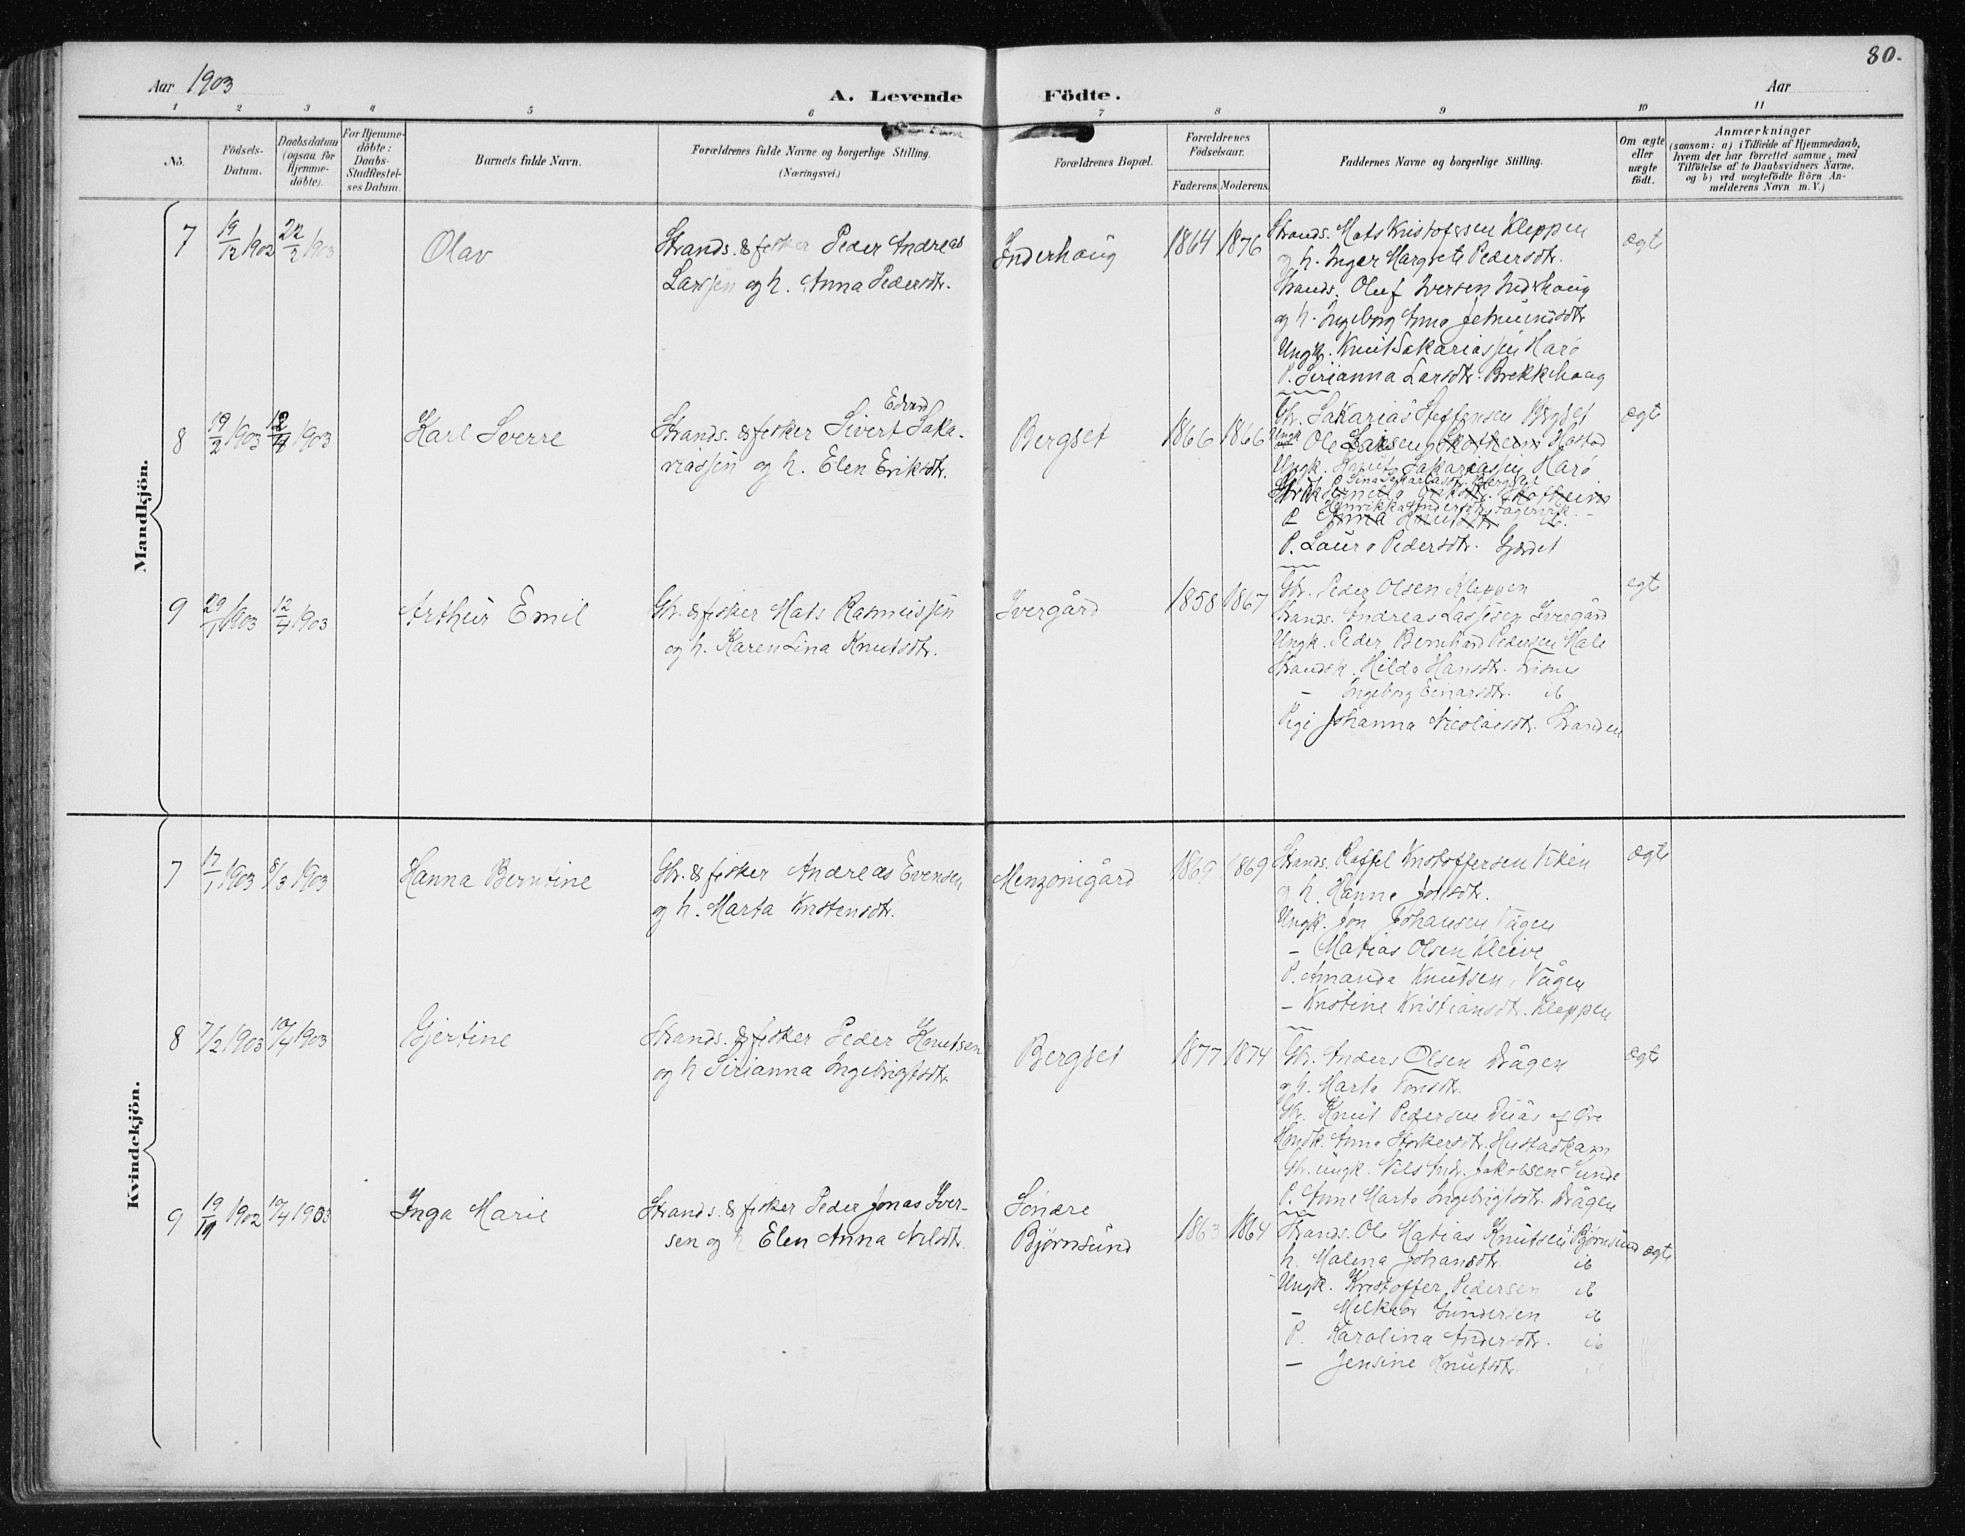 80.
Aar 1903
A. Levende Födte.
Aar
1 2 3 4 5 6 7 8 9 10 11
No.
Födsels-Datum.
Daabsdatum (ogsaa for Hjemmedöbte).
For Hjemmedöbte: Daabs-Stadfæstelses Datum.
Barnets fulde Navn.
Forældrenes fulde Navne og borgerlige Stilling. (Næringsvei.)
Forældrenes Bopæl.
Forældrenes Födselsaar.
Faderens. Moderens.
Faddernes Navne og borgerlige Stilling.
Om ægte eller uægte födt.
Anmærkninger
(saasom: a) i Tilfælde af Hjemmedaab, hvem der har forrettet samme, med Tilföielse af to Daabsvidners Navne, og b) ved uægtefödte Börn Anmelderens Navn m. V.)
Mandkjön.
7 19/12 1902 22/2 1903 Olav
Strands. & fisker Peder Andreas
Larssen og h. Anna Pedersdtr.
Inderhaug 1864 1876
Strands. Mats Kristofersen Kleppen
og h. Inger Margrete Pedersdtr.
Strands. Oluf Iversen Inderhaug
og h. Ingeborg Anna Jetmundsdtr
Ungk. Knut Sakariassen Harö
P. Sirianna Larsdtr. Brekkhaug
ægte
8 19/2 1903 12/4 1903 Karl Sverre
Edvard
Strands. & fisker Sivert Saka-
riassen og h. Elen Eriksdtr.
Bergset 1866 1866
Gbr. Sakarias Steffensen Bergset
Ungk. Ole Larsen Hostad
Ungk. Knut Sakariassen Harö
P. Lina Sakariasdtr. Bergset
Henrikka Andersdtr. Fagervik
P. Laura Pedersdtr. Gjerdet
ægte
9 29/1 1903 12/4 1903 Arthur Emil
Gbr. & fisker Mats Rasmussen
og h. Karen Lina Knutsdtr.
Ivergård 1858 1867
Gbr. Peder Olsen Kleppen
Strands. Andreas Lassesen Ivergård
Ungk. Peder Bernhard Pedersen Male
Strandk. Hilda Hansdtr. Lisnes
– Ingeborg Einarsdtr. ib
Pige Johanna Nicolaisdtr. Stranden
egte
Kvindekjön.
7 17/1 1903 8/3 1903 Hanna Berntine
Gbr. & fisker Andreas Evensen
og h. Marta Kristensdtr.
Menzonigård 1869 1869
Strands. Raffel Kristoffersen Viken
og h. Hanna Jonsdtr.
Ungk. Jon Johansen Vågen
– Matias Olsen Kleive
P. Amanda Knutsen, Vågen
– Kristine Kristiansdtr. Kleppen
ægte
8 7/2 1903 10/4 1903 Gjertine
Strands. & fisker Peder Knutsen
og h Sirianna Ingebrigtsdtr.
Bergset 1877 1874
Gbr. Anders Olsen Drågen
og h. Marta Tomsdtr.
Gbr. Knut Pedersen Duås af Öre
Husk. Anne Storkersdtr. Hustadkam
Gbr. ungk. Nils Andr. Jakobsen Sunde
P. Anne Marta Ingebrigtsdtr. Drågen
ægte
9 19/10 1902 10/4 1903 Inga Marie
Strands. & fisker Peder Jonas Iver-
sen og h Elen Anna Nilsdtr.
Söndre
Björnsund 1863 1864
Strands. Ole Matias Knutsen Björnsund
h. Malena Johansdtr. ib
Ungk. Kristoffer Pedersen ib
– Melkior Gundersen ib
P. Karolina Andersdtr. ib
– Jensine Knutsdtr. ib
ægte